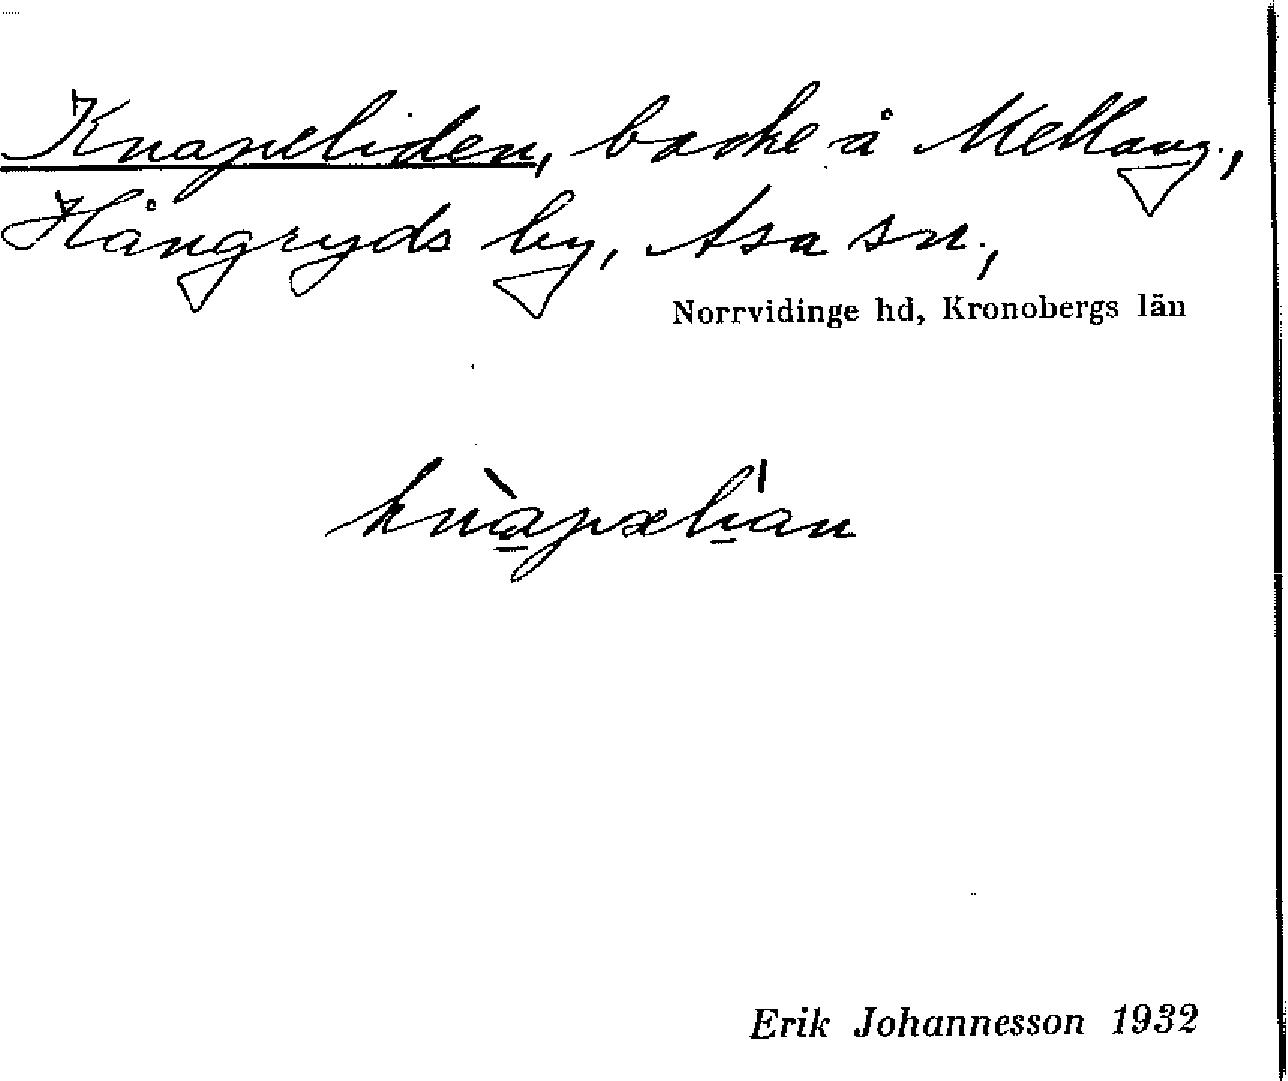 Knapeliden, backe å Mellang.,
Hångryds by, Asa sn.,
Norrvidinge hd, Kronobergs län
knàpæli̍an
Erik Johannesson 1932